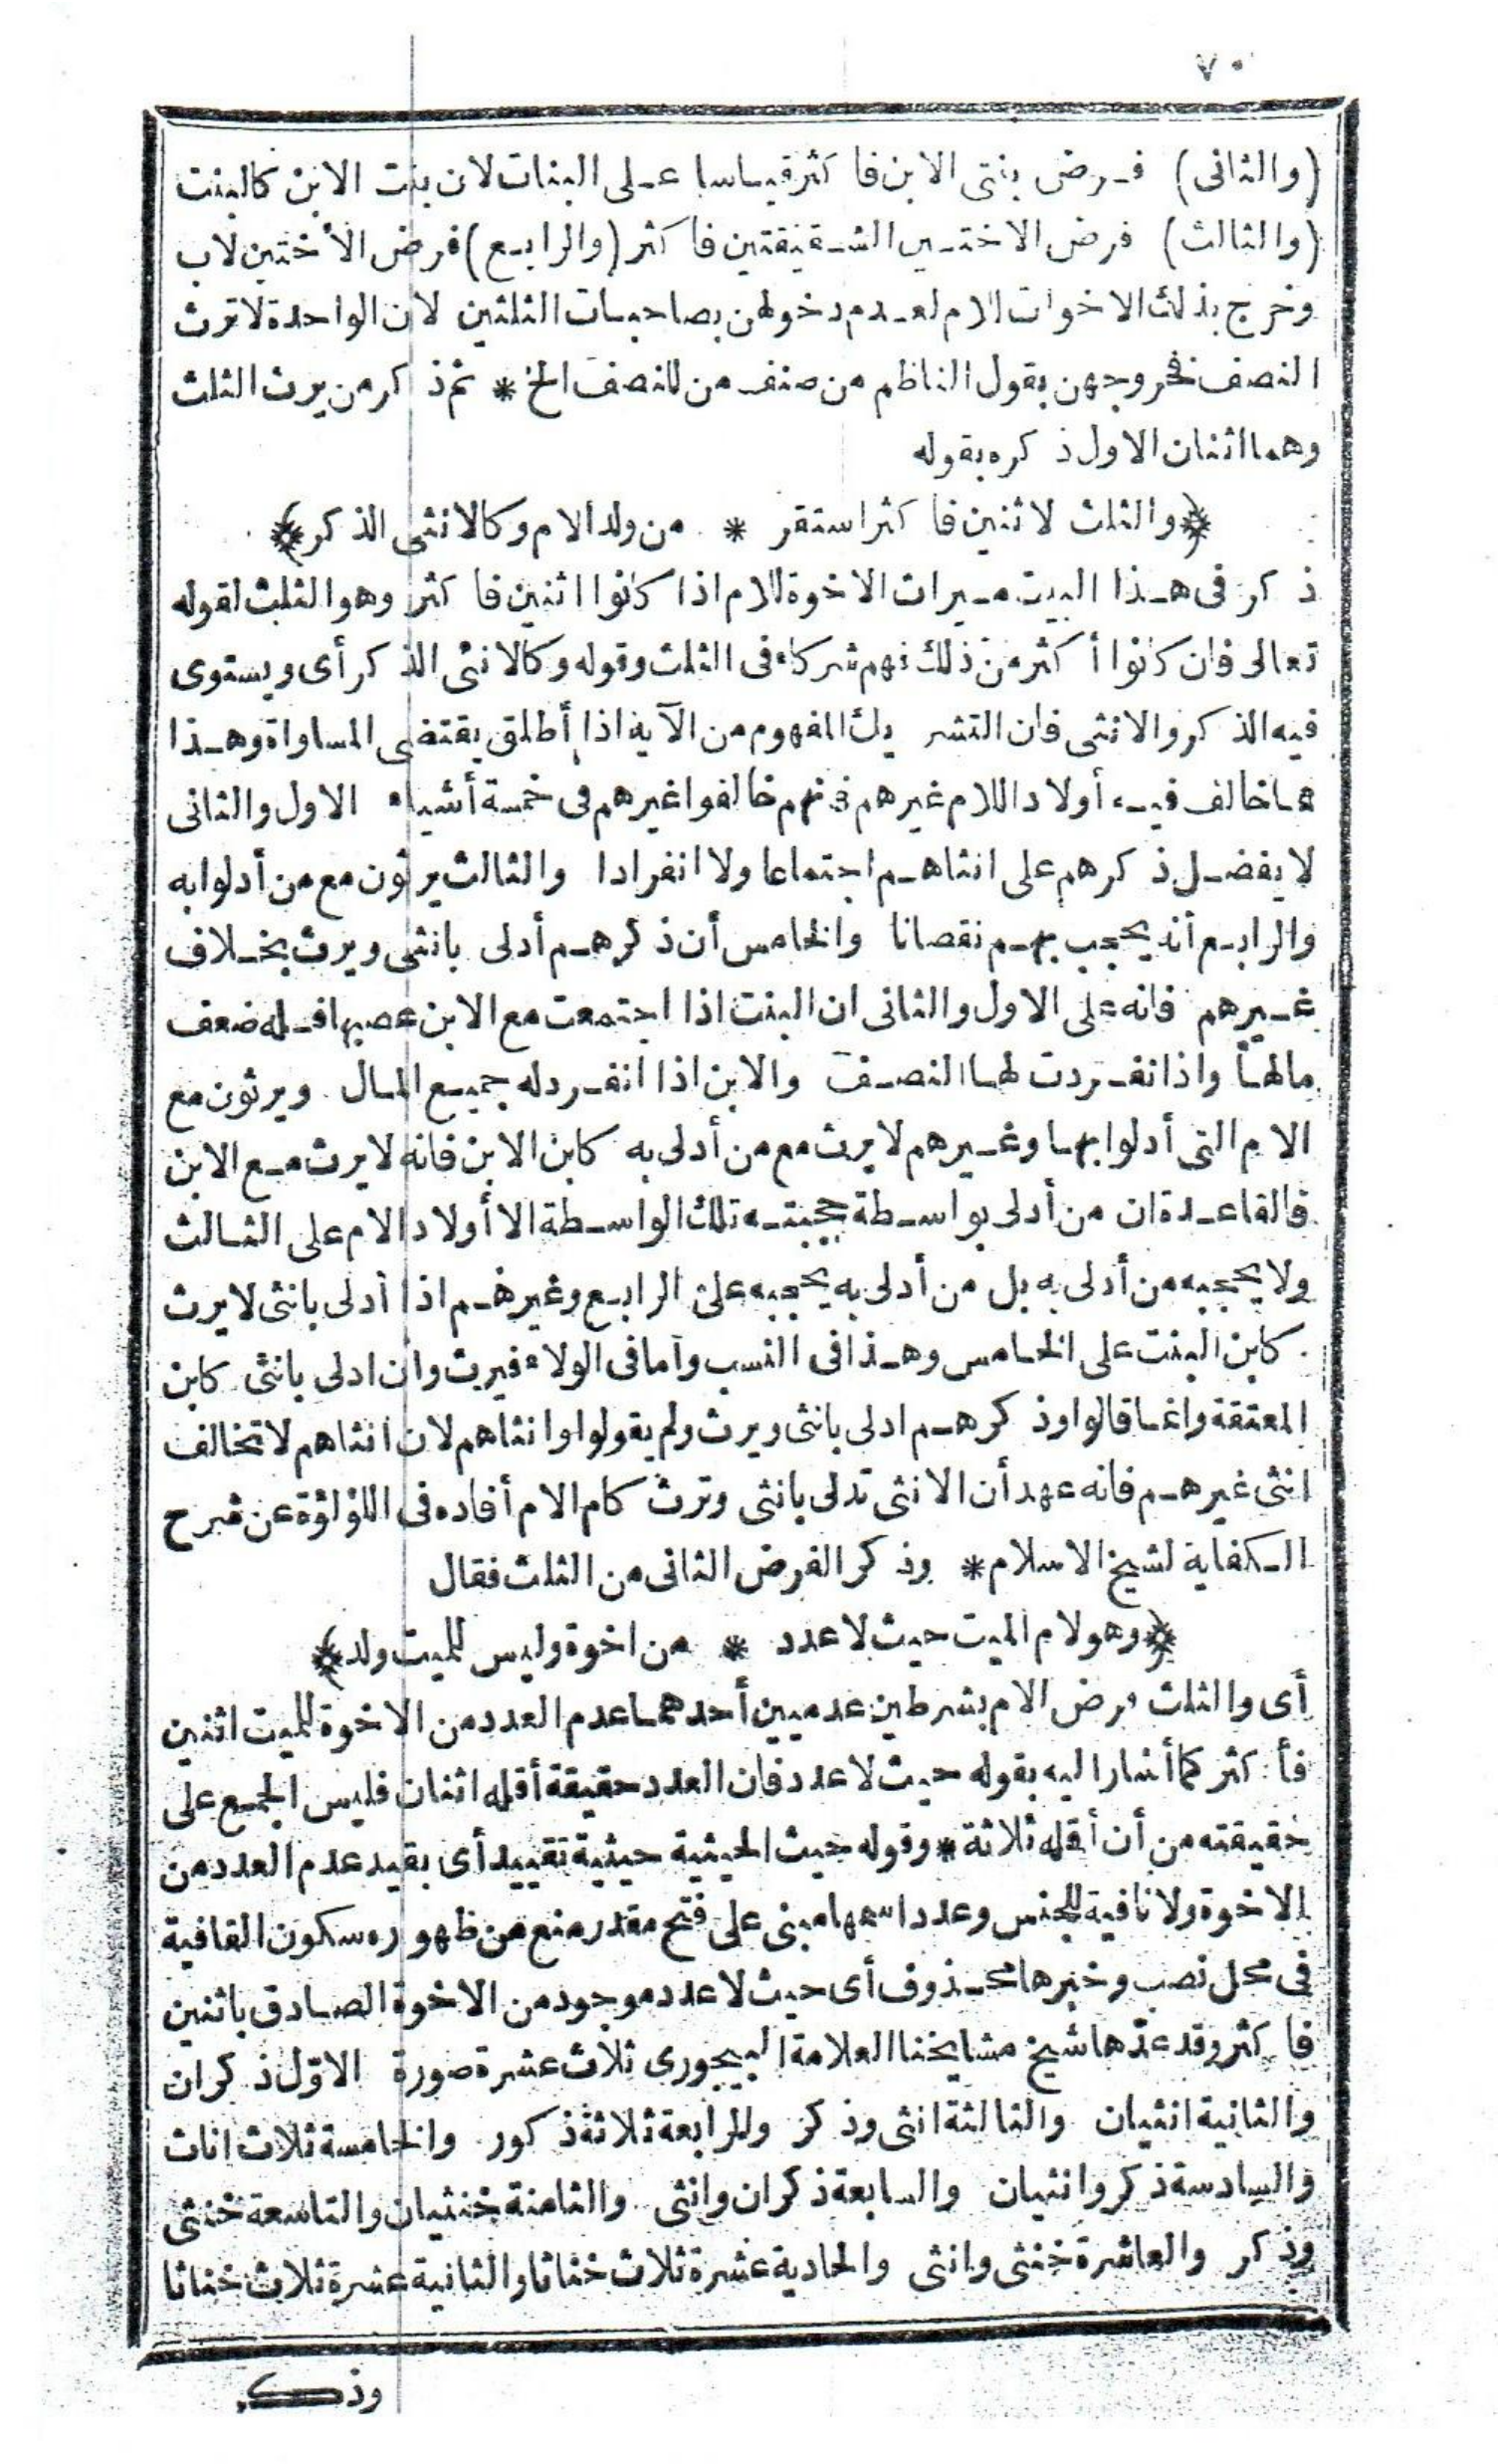 ٧٠
(والثانى) فرض بنتى الابن فاكثر قياسا على البنات لان بنت الابن كالبنت
(والثالث) فرض الاختين الشقيقتين فاكثر (والرابع) فرض الأختين لاب
وخرج بذلك الاخوات للام لعدم دخولهن بصاحبات الثلثين لان الواحدة لا ترث
النصف فخروجهن بقول الناظم من صنف من للنصف الخ * ثم ذكر من يرث الثلث
وهما اثنان الاول ذكره بقوله
﴿والثلث لاثنين فاكثر استقر * من ولد الام وكالانثى الذكر﴾
ذكر فى هذا البيت ميراث الاخوة للام اذا كانوا اثنين فاكثر وهو الثلث لقوله
تعالى فان كانوا أكثر من ذلك فهم شركاء فى الثلث وقوله وكالانثى الذكر أى ويستوى
فيه الذكر والانثى فان التشريك المفهوم من الآية اذا أطلق يقتضى المساواة وهذا
مما خالف فيه أولاد اللام غيرهم فانهم خالفوا غيرهم فى خمسة أشياء الاول والثانى
لا يفضل ذكرهم على انثاهم اجتماعا ولا انفرادا والثالث يرثون مع من أدلوا به
والرابع أنه يحجب بهم نقصانا والخامس أن ذكرهم أدلى بانثى ويرث بخلاف
غيرهم فانه على الاول والثانى ان البنت اذا اجتمعت مع الابن عصبها فله ضعف
مالها واذا نفردت لها النصف والابن اذا انفرد له جميع المال ويرثون مع
الام التى أدلوا بها وغيرهم لا يرث مع من أدلى به كابن الابن فانه لا يرث مع الابن
فالقاعدة ان من أدلى بواسطة حجبته تلك الواسطة الا أولاد الام على الثالث
ولا يحجبه من أدلى به بل من أدلى به يحجبه على الرابع وغيرهم اذا أدلى بانثى لا يرث
كابن البنت على الخامس وهذا فى النسب وأما فى الولاء فيرث وان ادلى بانثى كابن
المعتقة وانما قالوا وذكرهم ادلى بانثى ويرث ولم يقولوا وانثاهم لان انثاهم لا تخالف
انثى غيرهم فانه عهد أن الانثى تدلى بانثى وترث كام الام أفاده فى اللؤلؤة عن شرح
الكفاية لشيخ الاسلام * وذكر الفرض الثانى من الثلث فقال
﴿وهو لام الميت حيث لا عدد * من اخوة وليس للميت ولد﴾
أى والثلث فرض الام بشرطين عدميين أحدهما عدم العدد من الاخوة للميت اثنين
فأكثر كما أشار اليه بقوله حيث لا عدد فان العدد حقيقة أقله اثنان فليس الجمع على
حقيقته من أن أقله ثلاثة * وقوله حيث الحيثية حيثية تقييد أى بقيد عدم العدد من
الاخوة ولا نافية للجنس وعدد اسمها مبنى على فتح مقدر منع من ظهوره سكون القافية
فى محل نصب وخبرها محذوف أى حيث لا عدد موجود من الاخوة الصادق باثنين
فاكثر وقد عدّها شيخ مشايخنا العلامة البيجورى ثلاث عشرة صورة الاوّل ذكران
والثانية انثيان والثالثة انثى وذكر والرابعة ثلاثة ذكور والخامسة ثلاث اناث
والسادسة ذكر وانثيان والسابعة ذكران وانثى والثامنة خنثيان والتاسعة خنثى
وذكر والعاشرة خنثى وانثى والحادية عشرة ثلاث خناثا والثانية عشرة ثلاث خناثا
وذكر